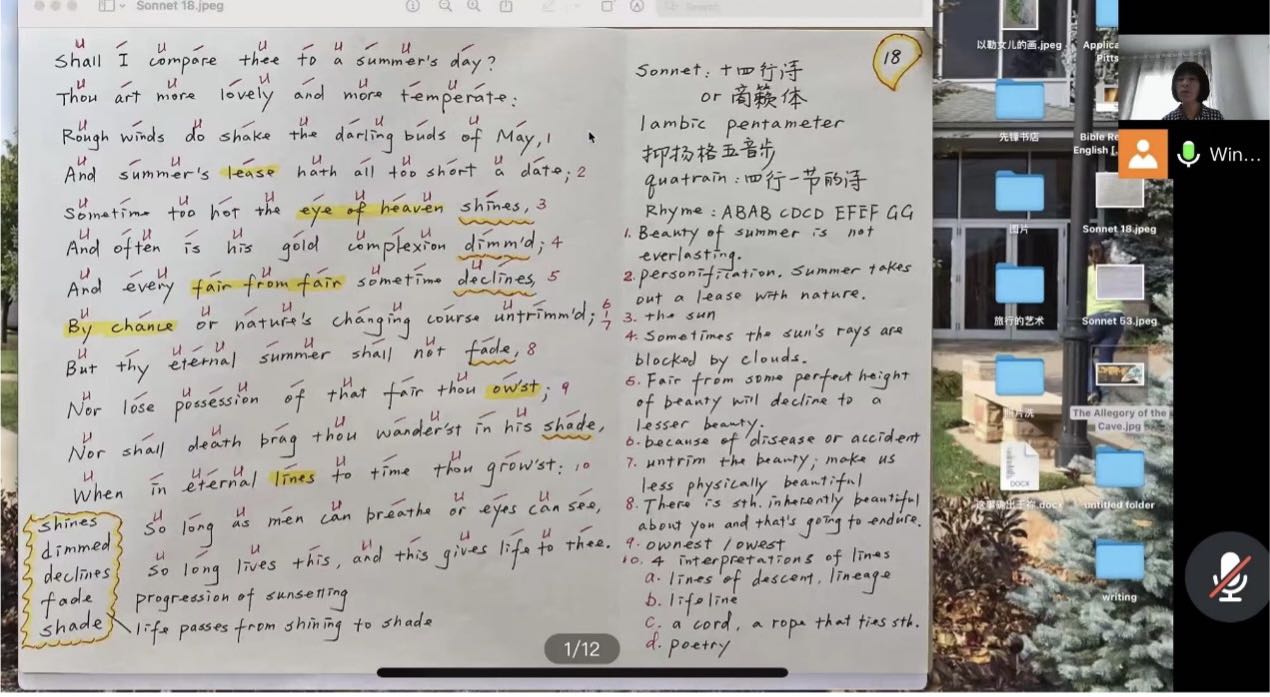 Sonnet 18.jpeg
Search
Shall I compare thee to a summer's day?
Thou art more lovely and more temperate:
Rough winds do shake the darling buds of May, 1
And summer's lease hath all too short a date; 2
Sometime too hot the eye of heaven shines, 3
And often is his gold complexion dimm'd; 4
And every fair from fair sometime declines, 5
By chance or nature's changing course untrimm'd; 6 7
But thy eternal summer shall not fade, 8
Nor lose possession of that fair thou ow'st; 9
Nor shall death brag thou wander'st in his shade,
When in eternal lines to time thou grow'st: 10
So long as men can breathe or eyes can see,
So long lives this, and this gives life to thee.
shines
dimmed
declines
fade
shade
progression of sunsetting
life passes from shining to shade
18
Sonnet: 十四行诗
or 商籁体
Iambic pentameter
抑扬格五音步
quatrain: 四行一节的诗
Rhyme: ABAB CDCD EFEF GG
1. Beauty of summer is not
everlasting.
2. personification. Summer takes
out a lease with nature.
3. the sun
4. Sometimes the sun's rays are
blocked by clouds.
5. Fair from some perfect height
of beauty will decline to a
lesser beauty.
6. because of disease or accident
7. untrim the beauty; make us
less physically beautiful
8. There is sth. inherently beautiful
about you and that's going to endure.
9. ownest / owest
10. 4 interpretations of lines
a. lines of descent, lineage
b. lifeline
c. a cord, a rope that ties sth.
d. poetry
1/12
以勒女儿的画.jpeg
Applica
Pitts
先锋书店
Bible Re
English [...
Win...
图片
Sonnet 18.jpeg
旅行的艺术
Sonnet 53.jpeg
The Allegory of the
Cave.jpg
DOCX
untitled folder
writing